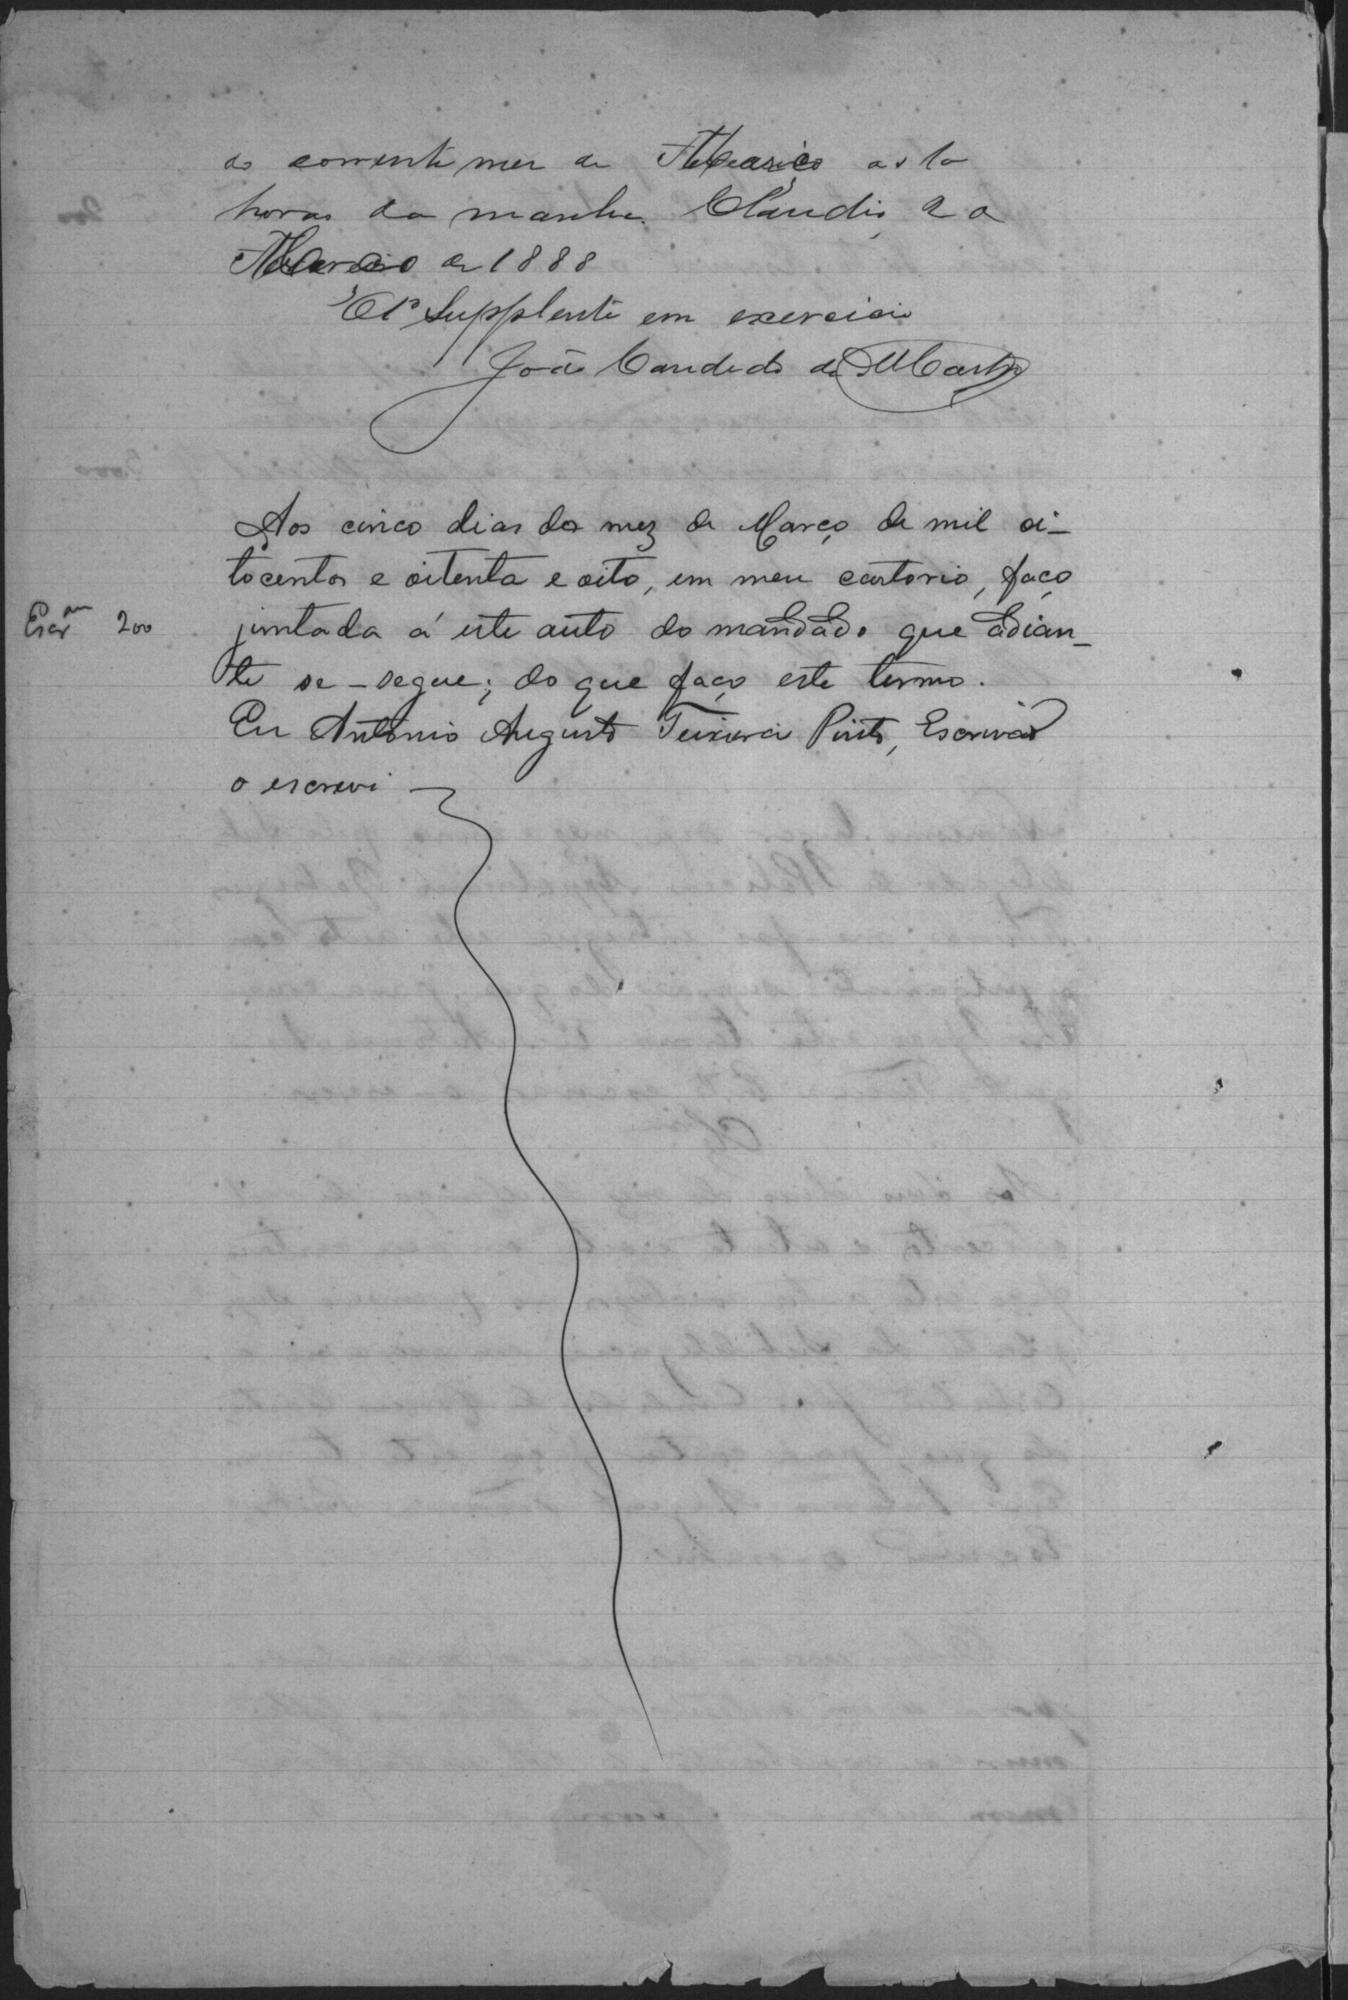 do corrente mez de Março as 10
horas da manhã. Claudio, 2 de
Março de 1888
O 1º Supplente em exercicio
João Candido de Castro
Aos cinco dias do mez de Março de mil oi-
tocentos e oitenta e oito, em meu cartorio, faço
Escram 200
juntada á este auto do mandado que adian-
te se-segue; do que faço este termo.
Eu Antonio Augusto Teixeira Pinto, Escrivão
o escrevi